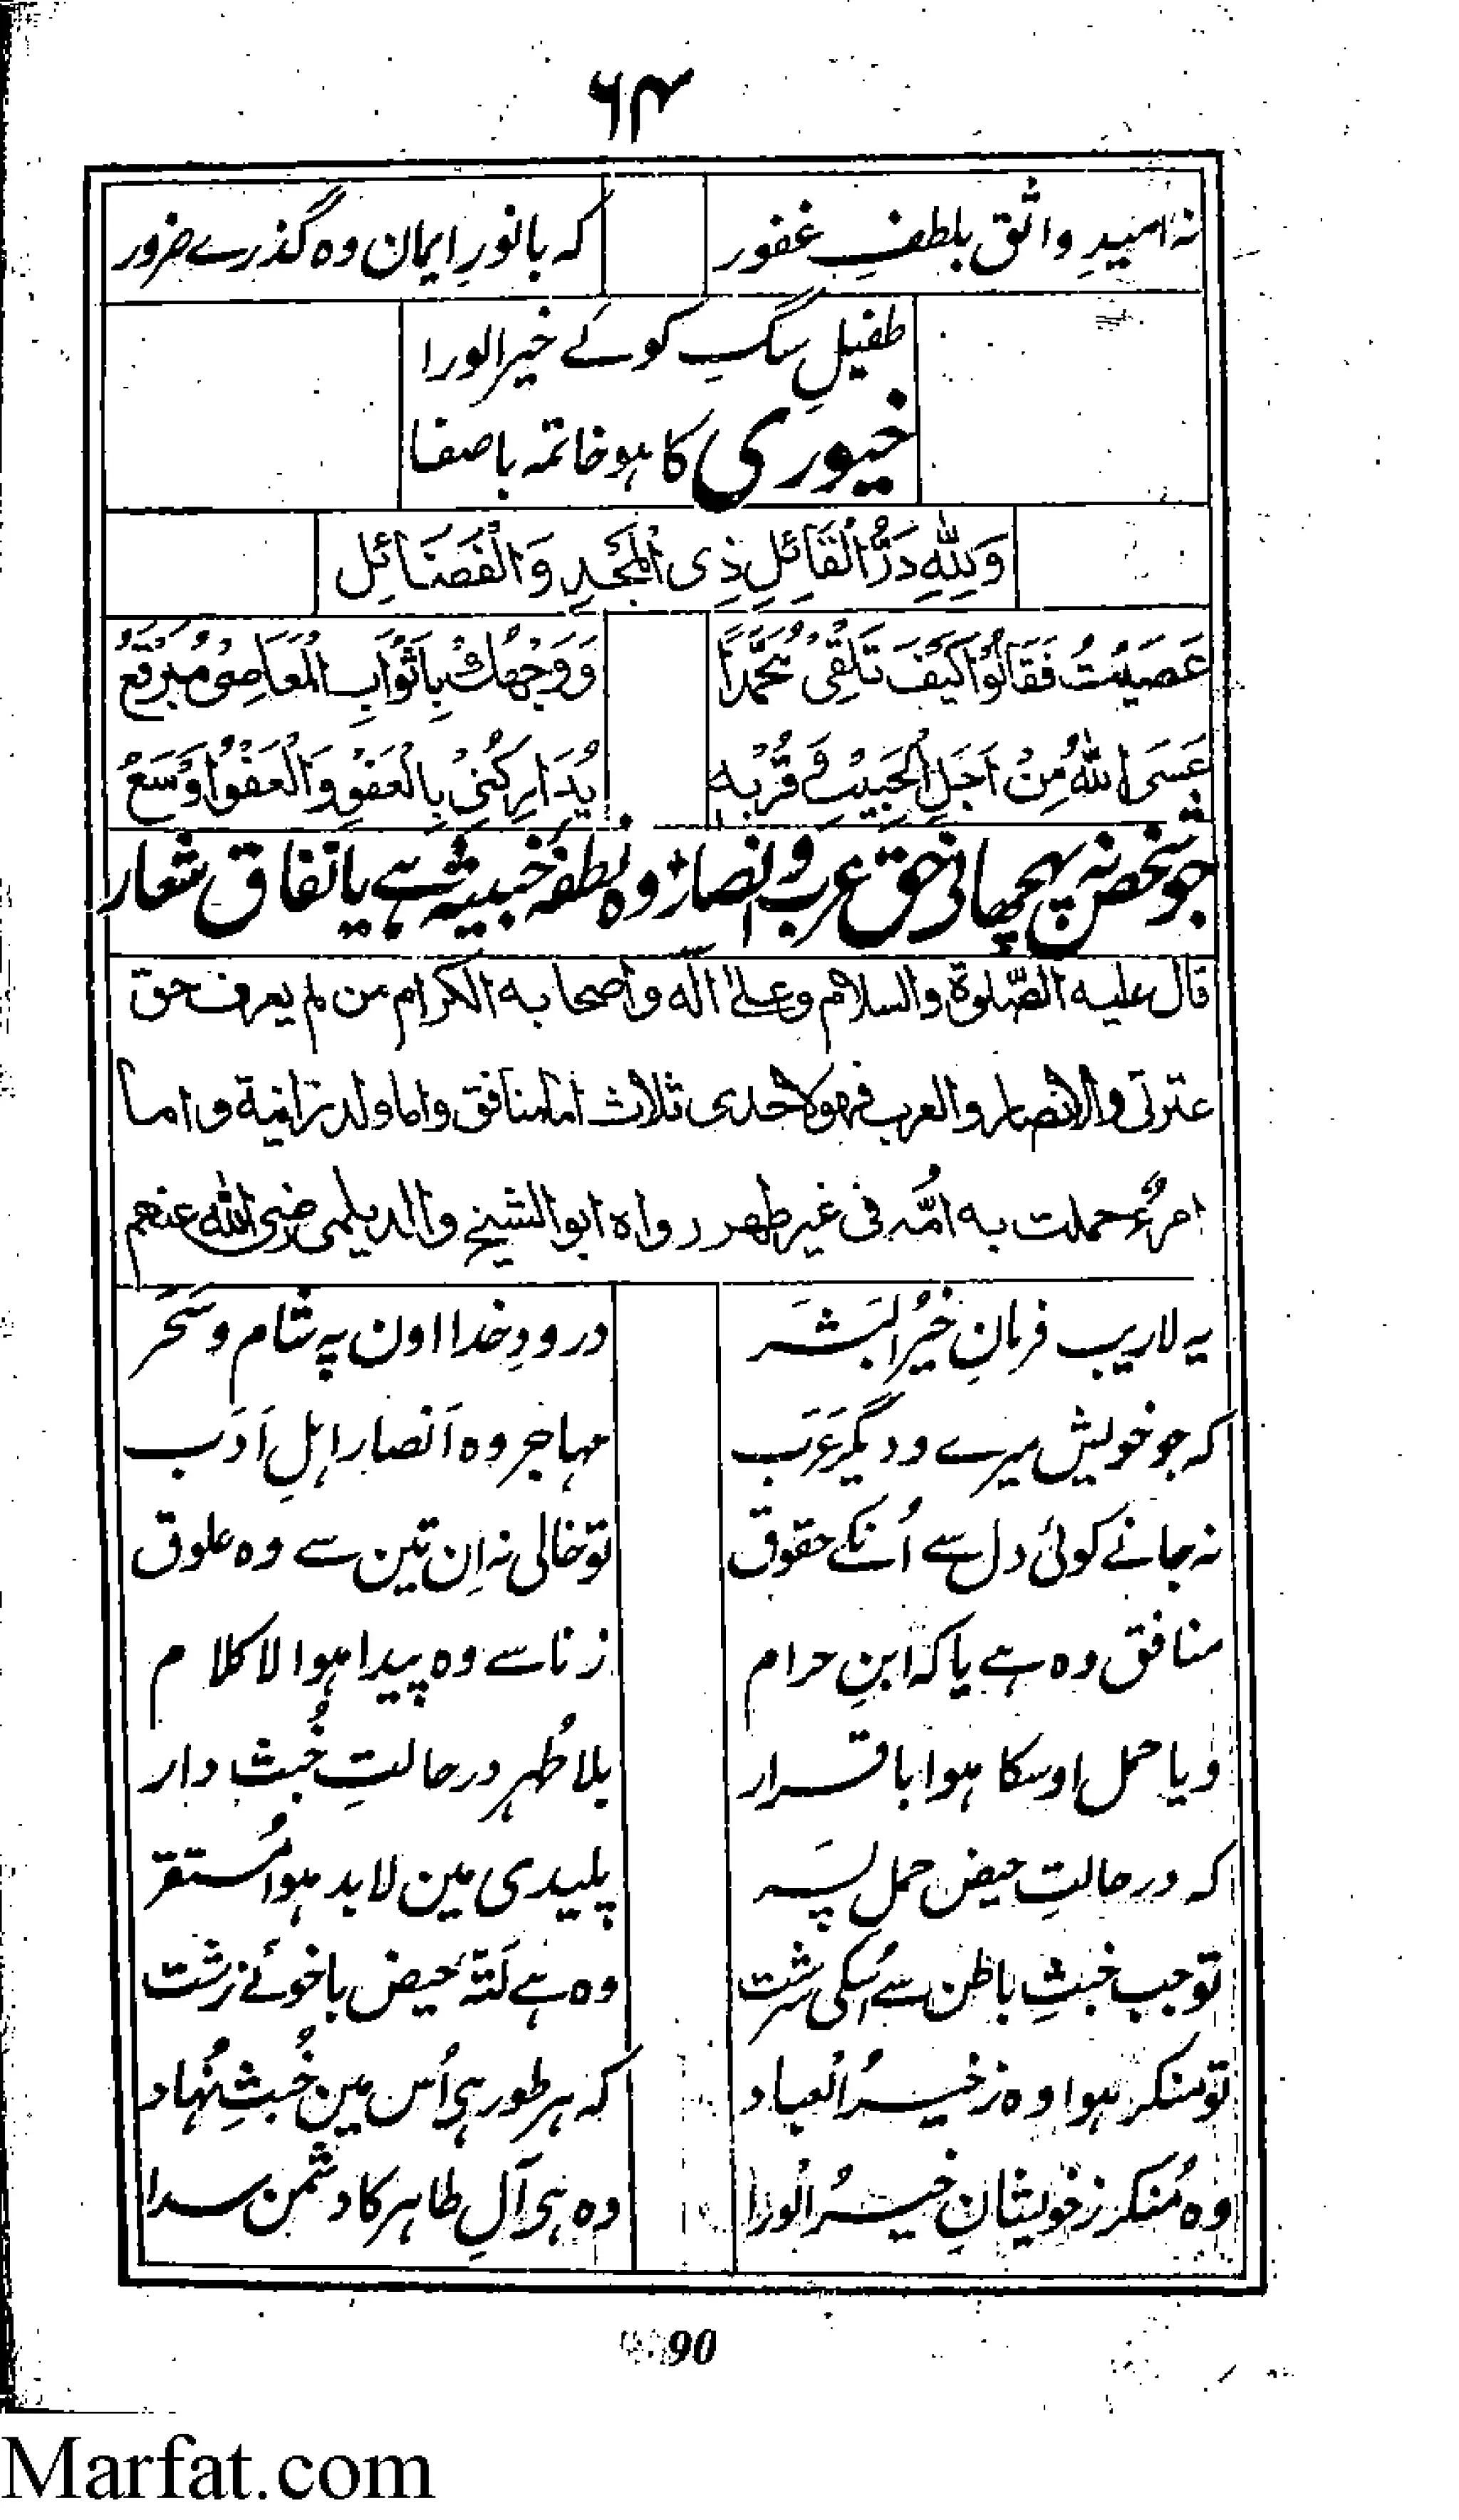 ٦٤
نہ امیدِ واثق بلطفِ غفور کہ بانورِ ایمان وہ گذرے ضرور
طفیلِ سگِ کوئے خیر الورا
خیوری کا ہو خاتمہ باصفا
وَلِلّٰهِ دَرُّ الْقَائِلِ ذِی الْمَجْدِ وَالْفَضَائِلِ
عَصَیْتُ فَقَالُوْا کَیْفَ تَلْقٰی مُحَمَّدًا وَوَجْهُكَ بِاَثْوَابِ الْمَعَاصِیْ مُبَرْقَعُ
عَسَی اللّٰهُ مِنْ اَجَلِ الْحَبِیْبِ وَ قُرْبِهٖ یُدَارِکُنِیْ بِالْعَفْوِ وَالْعَفْوُ اَوْسَعُ
جو شخص نہ پہچانے حق عرب و انصار وہ نطفہ خبیثہ ہے یا نفاق شعار
قال علیه الصّلوة والسلام وعلیٰ اٰله واصحابه الکرام من لم یعرف حق
عترتی والانصار والعرب فهو لاحدی ثلاث اما منافق واما ولد زانیة واما
امرءٌ حملت به امّه فی غیر طهر رواه ابو الشیخ والدیلمی رضی الله عنهم
یہ لاریب فرمانِ خیرُ البَشَر درودِ خدا اون پہ شام و سَحَر
کہ جو خویش میرے و دیگر عَرَب مہاجر وہ اَنصار اہلِ اَدَب
نہ جانے کوئی دل سے اُنکے حقوق تو خالی نہ اِن تین سے وہ علوق
منافق وہ ہے یا کہ ابنِ حرام زنا سے وہ پیدا ہوا لا کلام
و یا حمل اوسکا ہوا باقرار بلا طُہر در حالتِ خُبث دار
کہ در حالتِ حیض حمل پسَر پلیدی مین لابد ہوا مُستقر
تو جب خبثِ باطن سے اُسکی سرشت وہ ہے لَتّۂ حَیض باخوئے زشت
تو منکر ہوا وہ ز خیرُ العباد کہ ہر طور ہی اُس مین خُبثِ نہاد
وہ مُنکر ز خویشانِ خیرُ الورا وہ ہی آلِ طاہر کا دشمن سدا
90
Marfat.com